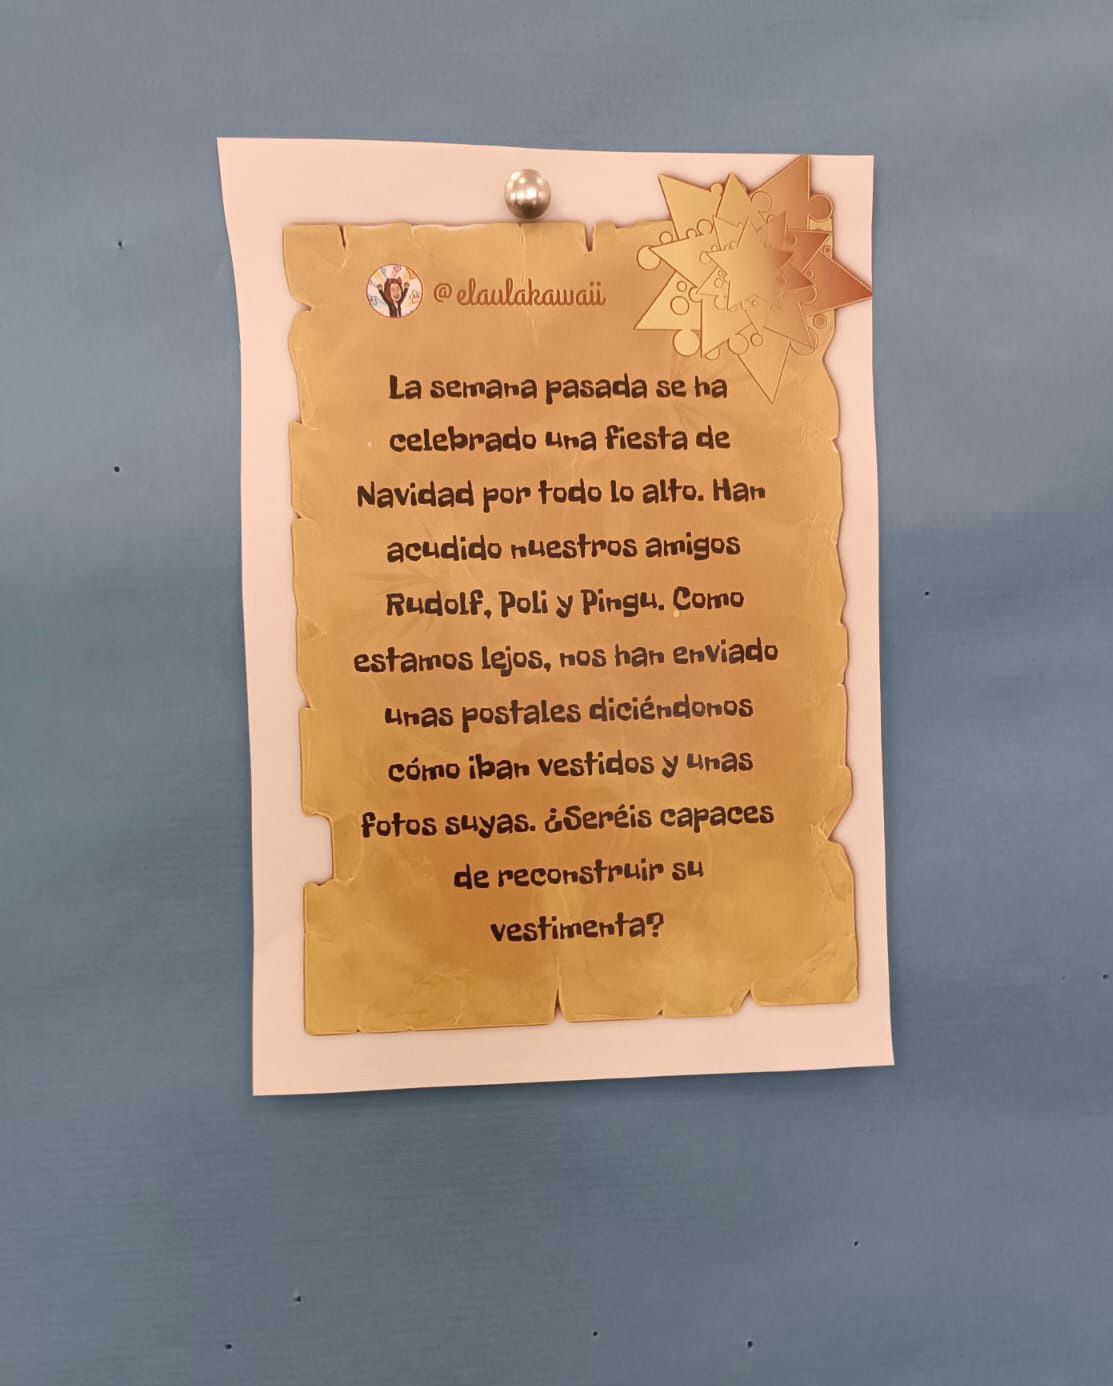 @elaulakawaii
La semana pasada se ha
celebrado una fiesta de
Navidad por todo lo alto. Han
acudido nuestros amigos
Rudolf, Poli y Pingu. Como
estamos lejos, nos han enviado
unas postales diciéndonos
cómo iban vestidos y unas
fotos suyas. ¿Seréis capaces
de reconstruir su
vestimenta?